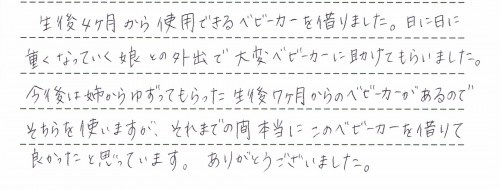 生後4ヶ月から使用できるベビーカーを借りました。日に日に
重くなっていく娘との外出で大変ベビーカーに助けてもらいました。
今後は姉からゆずってもらった生後7ヶ月からのベビーカーがあるので
そちらを使いますが、それまでの間本当にこのベビーカーを借りて
良かったと思っています。ありがとうございました。